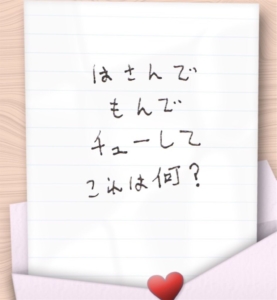 はさんで
もんで
チューして
これは何?